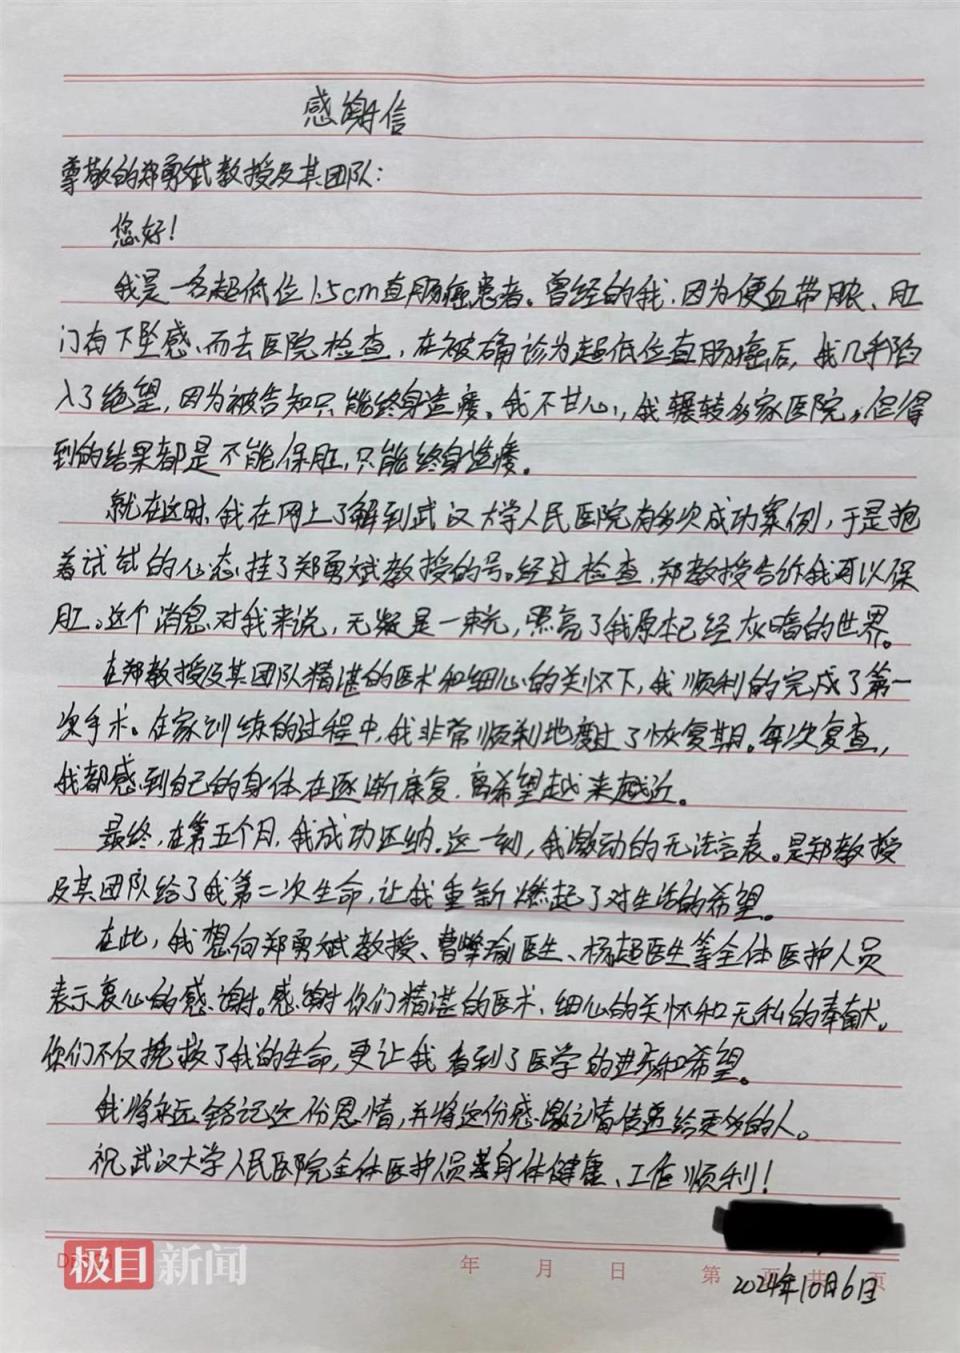 感谢信
尊敬的郑勇斌教授及其团队：
您好！
我是一名超低位1.5cm直肠癌患者。曾经的我，因为便血带脓、肛
门有下坠感，而去医院检查，在被确诊为超低位直肠癌后，我几乎陷
入了绝望，因为被告知只能终身造瘘。我不甘心，我辗转多家医院，但得
到的结果都是不能保肛，只能终身造瘘。
就在这时，我在网上了解到武汉大学人民医院有多次成功案例，于是抱
着试试的心态挂了郑勇斌教授的号。经过检查，郑教授告诉我可以保
肛。这个消息对我来说，无疑是一束光，照亮了我原本已经灰暗的世界。
在郑教授及其团队精湛的医术和细心的关怀下，我顺利的完成了第一
次手术。在家训练的过程中，我非常顺利地度过了恢复期。每次复查，
我都感到自己的身体在逐渐康复，离希望越来越近。
最终，在第五个月，我成功还纳。这一刻，我激动的无法言表。是郑教授
及其团队给了我第二次生命，让我重新燃起了对生活的希望。
在此，我想向郑勇斌教授、曹峰瑜医生、杨超医生等全体医护人员
表示衷心的感谢。感谢你们精湛的医术、细心的关怀和无私的奉献。
你们不仅挽救了我的生命，更让我看到了医学的进步和希望。
我将永远铭记这份恩情，并将这份感激之情传递给更多的人。
祝武汉大学人民医院全体医护员身体健康、工作顺利！
极目新闻
年 月 日 第 页 共 页
2024年10月6日